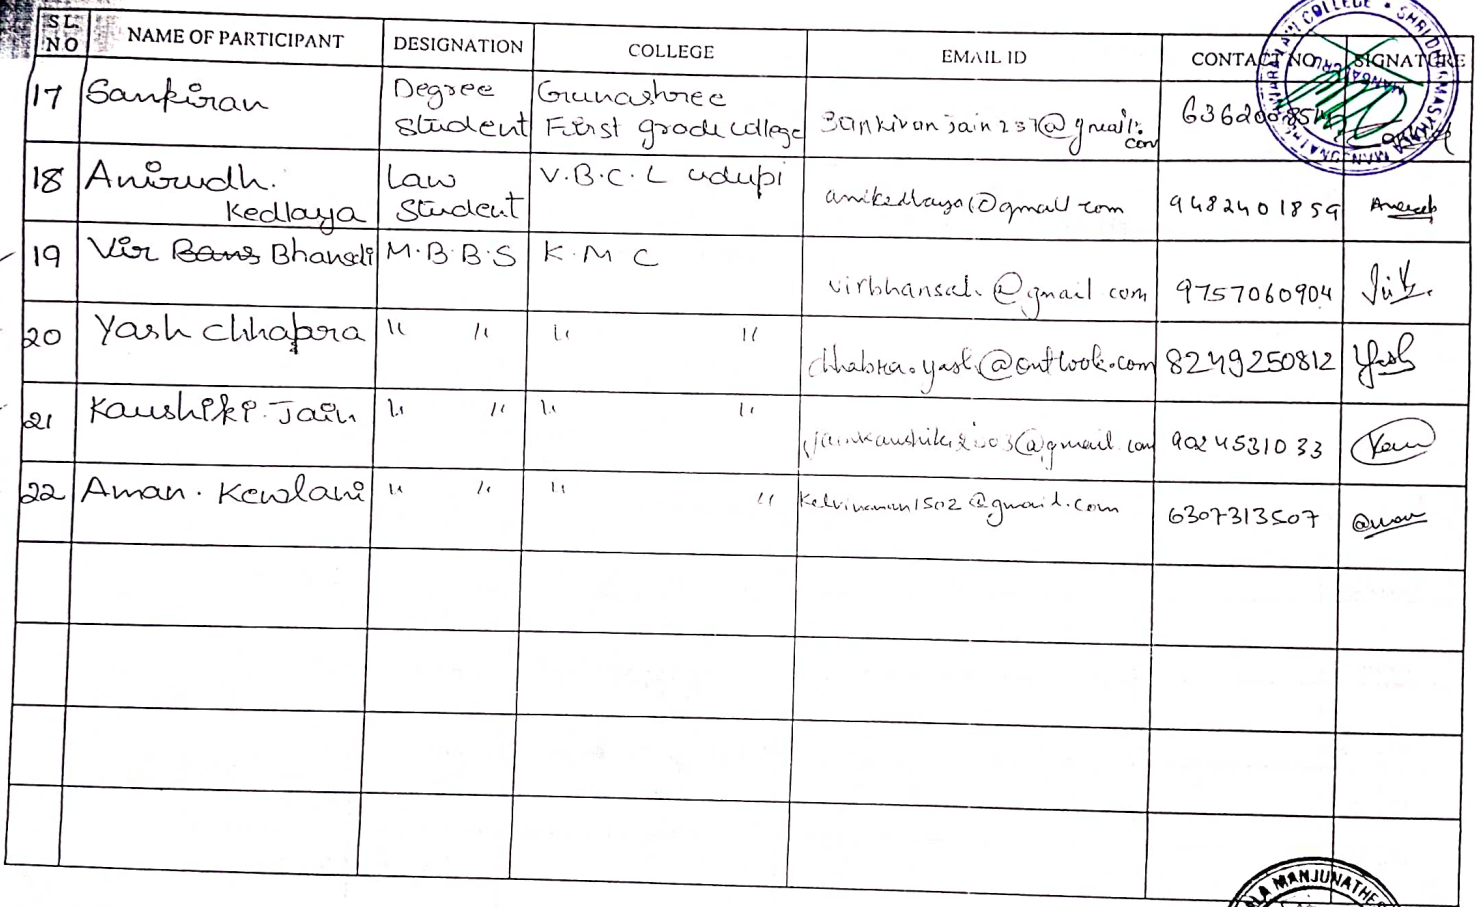 SL. NO NAME OF PARTICIPANT DESIGNATION COLLEGE EMAIL ID CONTACT NO SIGNATURE
17 Sankiran Degree Student Gunashree First grade college sankiranjain237@gmail.com
18 Anirudh. Kedlaya Law Student V.B.C.L udupi anikedlaya1@gmail.com 9482401859
19 Vir Bans Bhansali M.B.B.S K.M.C virbhansali@gmail.com 9757060904
20 Yash Chhabra " " " " chhabra.yash@outlook.com 8249250812 Yash
21 Kaushiki Jain " " " " jainkaushiki2003@gmail.com 9024531033 Kau
22 Aman. Kewlani " " " " 6307313507 Aman
COLLEGE • SHRI DHARMASTHALA MANJUNATHE
MANGALORE
LA MANJUNATHE